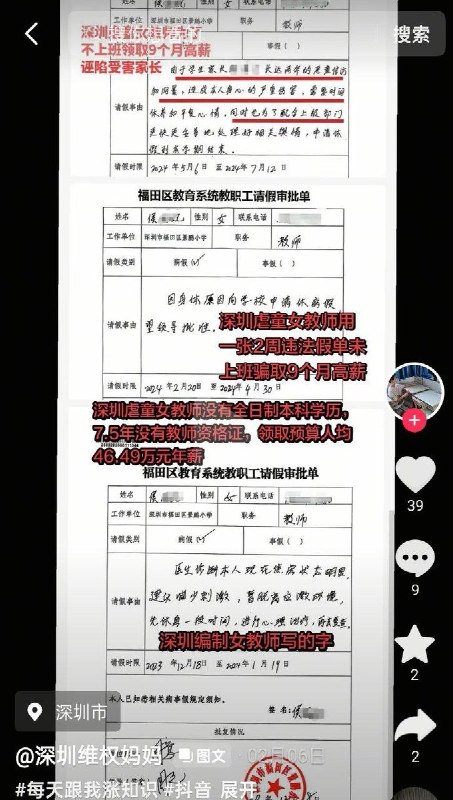 搜索
深圳
不上班领取9个月高薪
诬陷受害家长
请假类别
事假（ ）
由于学生家长
长达两年的
休养和平复心情，同时也为了配合上级部门
更快更妥善地处理好相关舆情，申请休
假到本学期结束。
请假事由
请假时限
2024年5月6日 至2024年7月12日
福田区教育系统教职工请假审批单
姓名
侯
性别
女
联系电话
工作单位
深圳市福田区景鹏小学
职务
教师
请假类别
病假（✓）
事假（ ）
请假事由
因身体原因向学校申请休病假
望领导批准。
深圳虐童女教师用
一张2周违法假单未
上班骗取9个月高薪
请假时限
2024年2月20日 至 2024年4月30日
深圳虐童女教师没有全日制本科学历，
7.5年没有教师资格证，领取预算人均
46.49万元年薪
福田区教育系统教职工请假审批单
姓名
侯
性别
女
联系电话
工作单位
深圳市福田区景鹏小学
职务
教师
请假类别
病假（✓）
事假（ ）
请假事由
医生诊断本人现在焦虑状态明显，
建议减少刺激，暂脱离应激环境，
先休息一段时间，进行心理治疗，
深圳编制女教师写的字
请假时限
2023年12月18日 至2024年1月19日
本人已知悉相关病事假规定须知。
签名：侯
批复情况
39
9
2
2
深圳市
@深圳维权妈妈
图文
02月06日
#每天跟我涨知识 #抖音 展开